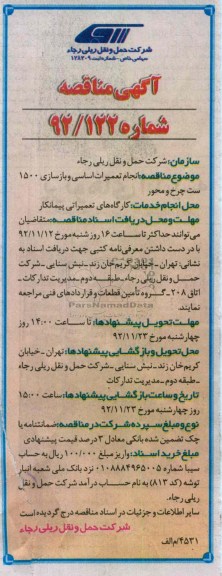 شرکت حمل و نقل ریلی رجاء
سهامی خاص - شماره ثبت ۱۲۸۳۰۹
آگهی مناقصه
شماره ۹۲/۱۲۲
سازمان: شرکت حمل و نقل ریلی رجاء
موضوع مناقصه: انجام تعمیرات اساسی و بازسازی ۱۵۰۰
ست چرخ و محور
محل انجام خدمات: کارگاه‌های تعمیراتی پیمانکار
مهلت و محل دریافت اسناد مناقصه: متقاضیان
می‌توانند حداکثر تا ساعت ۱۶ روز شنبه مورخ ۹۲/۱۱/۱۲
با در دست داشتن معرفی‌نامه کتبی جهت دریافت اسناد به
نشانی: تهران - خیابان کریم خان زند - نبش سنایی - شرکت
حمل و نقل ریلی رجاء - طبقه دوم - مدیریت تدارکات -
اتاق ۲۰۸ - گروه تأمین قطعات و قراردادهای فنی مراجعه
نمایند.
مهلت تحویل پیشنهادها: تا ساعت ۱۴:۰۰ روز
چهارشنبه مورخ ۹۲/۱۱/۲۳
محل تحویل و بازگشایی پیشنهادها: تهران - خیابان
کریم خان زند - نبش سنایی - شرکت حمل و نقل ریلی رجاء
- طبقه دوم - مدیریت تدارکات
تاریخ و ساعت بازگشایی پیشنهادها: ساعت ۱۵:۰۰
روز چهارشنبه مورخ ۹۲/۱۱/۲۳
نوع و مبلغ سپرده شرکت در مناقصه: ضمانتنامه یا
چک تضمین شده بانکی معادل ۳ درصد قیمت پیشنهادی
مبلغ خرید اسناد: واریز مبلغ ۱۰۰/۰۰۰ ریال به حساب
سیبا شماره ۰۱۰۸۸۸۴۹۶۵۰۰۵ نزد بانک ملی شعبه انبار
توشه (کد ۸۱۳) به نام حساب درآمد شرکت حمل و نقل
ریلی رجاء.
سایر اطلاعات و جزئیات در اسناد مناقصه درج گردیده است
شرکت حمل و نقل ریلی رجاء
۴۵۳۱/م الف